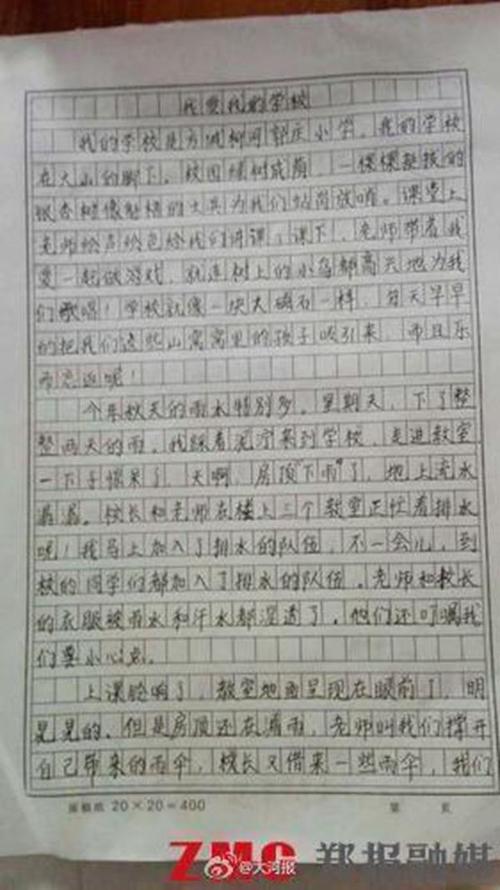 我爱我的学校
我的学校是方城柳河郭庄小学。我的学校
在大山的脚下，校园绿树成荫，一棵棵挺拔的
银杏树像魁梧的士兵为我们站岗放哨。课堂上
老师绘声绘色给我们讲课；课下，老师带着我
爱一起做游戏，就连树上的小鸟都高兴地为我
们歌唱！学校就像一块大磁石一样，每天早早
的把我们这些山窝窝里的孩子吸引来，而且乐
而忘返呢！
今年秋天的雨水特别多。星期天，下了整
整两天的雨。我踩着泥泞来到学校，走进教室
一下子惊呆了，天啊，房顶"下雨"了，地上充水
晶晶。校长和老师在楼上三个教室正忙着排水
呢！我马上加入了排水的队伍，不一会儿，到
校的同学们都加入了排水的队伍。老师和校长
的衣服被雨水和汗水都湿透了，他们还叮嘱我
们要小心点。
上课铃响了，教室地面呈现在眼前了，明
晃晃的。但是房顶还在漏雨，老师叫我们撑开
自己带来的雨伞，校长又借来一些雨伞，我们
原稿纸 20×20=400 第 页
ZMG 郑报融媒
@大河报